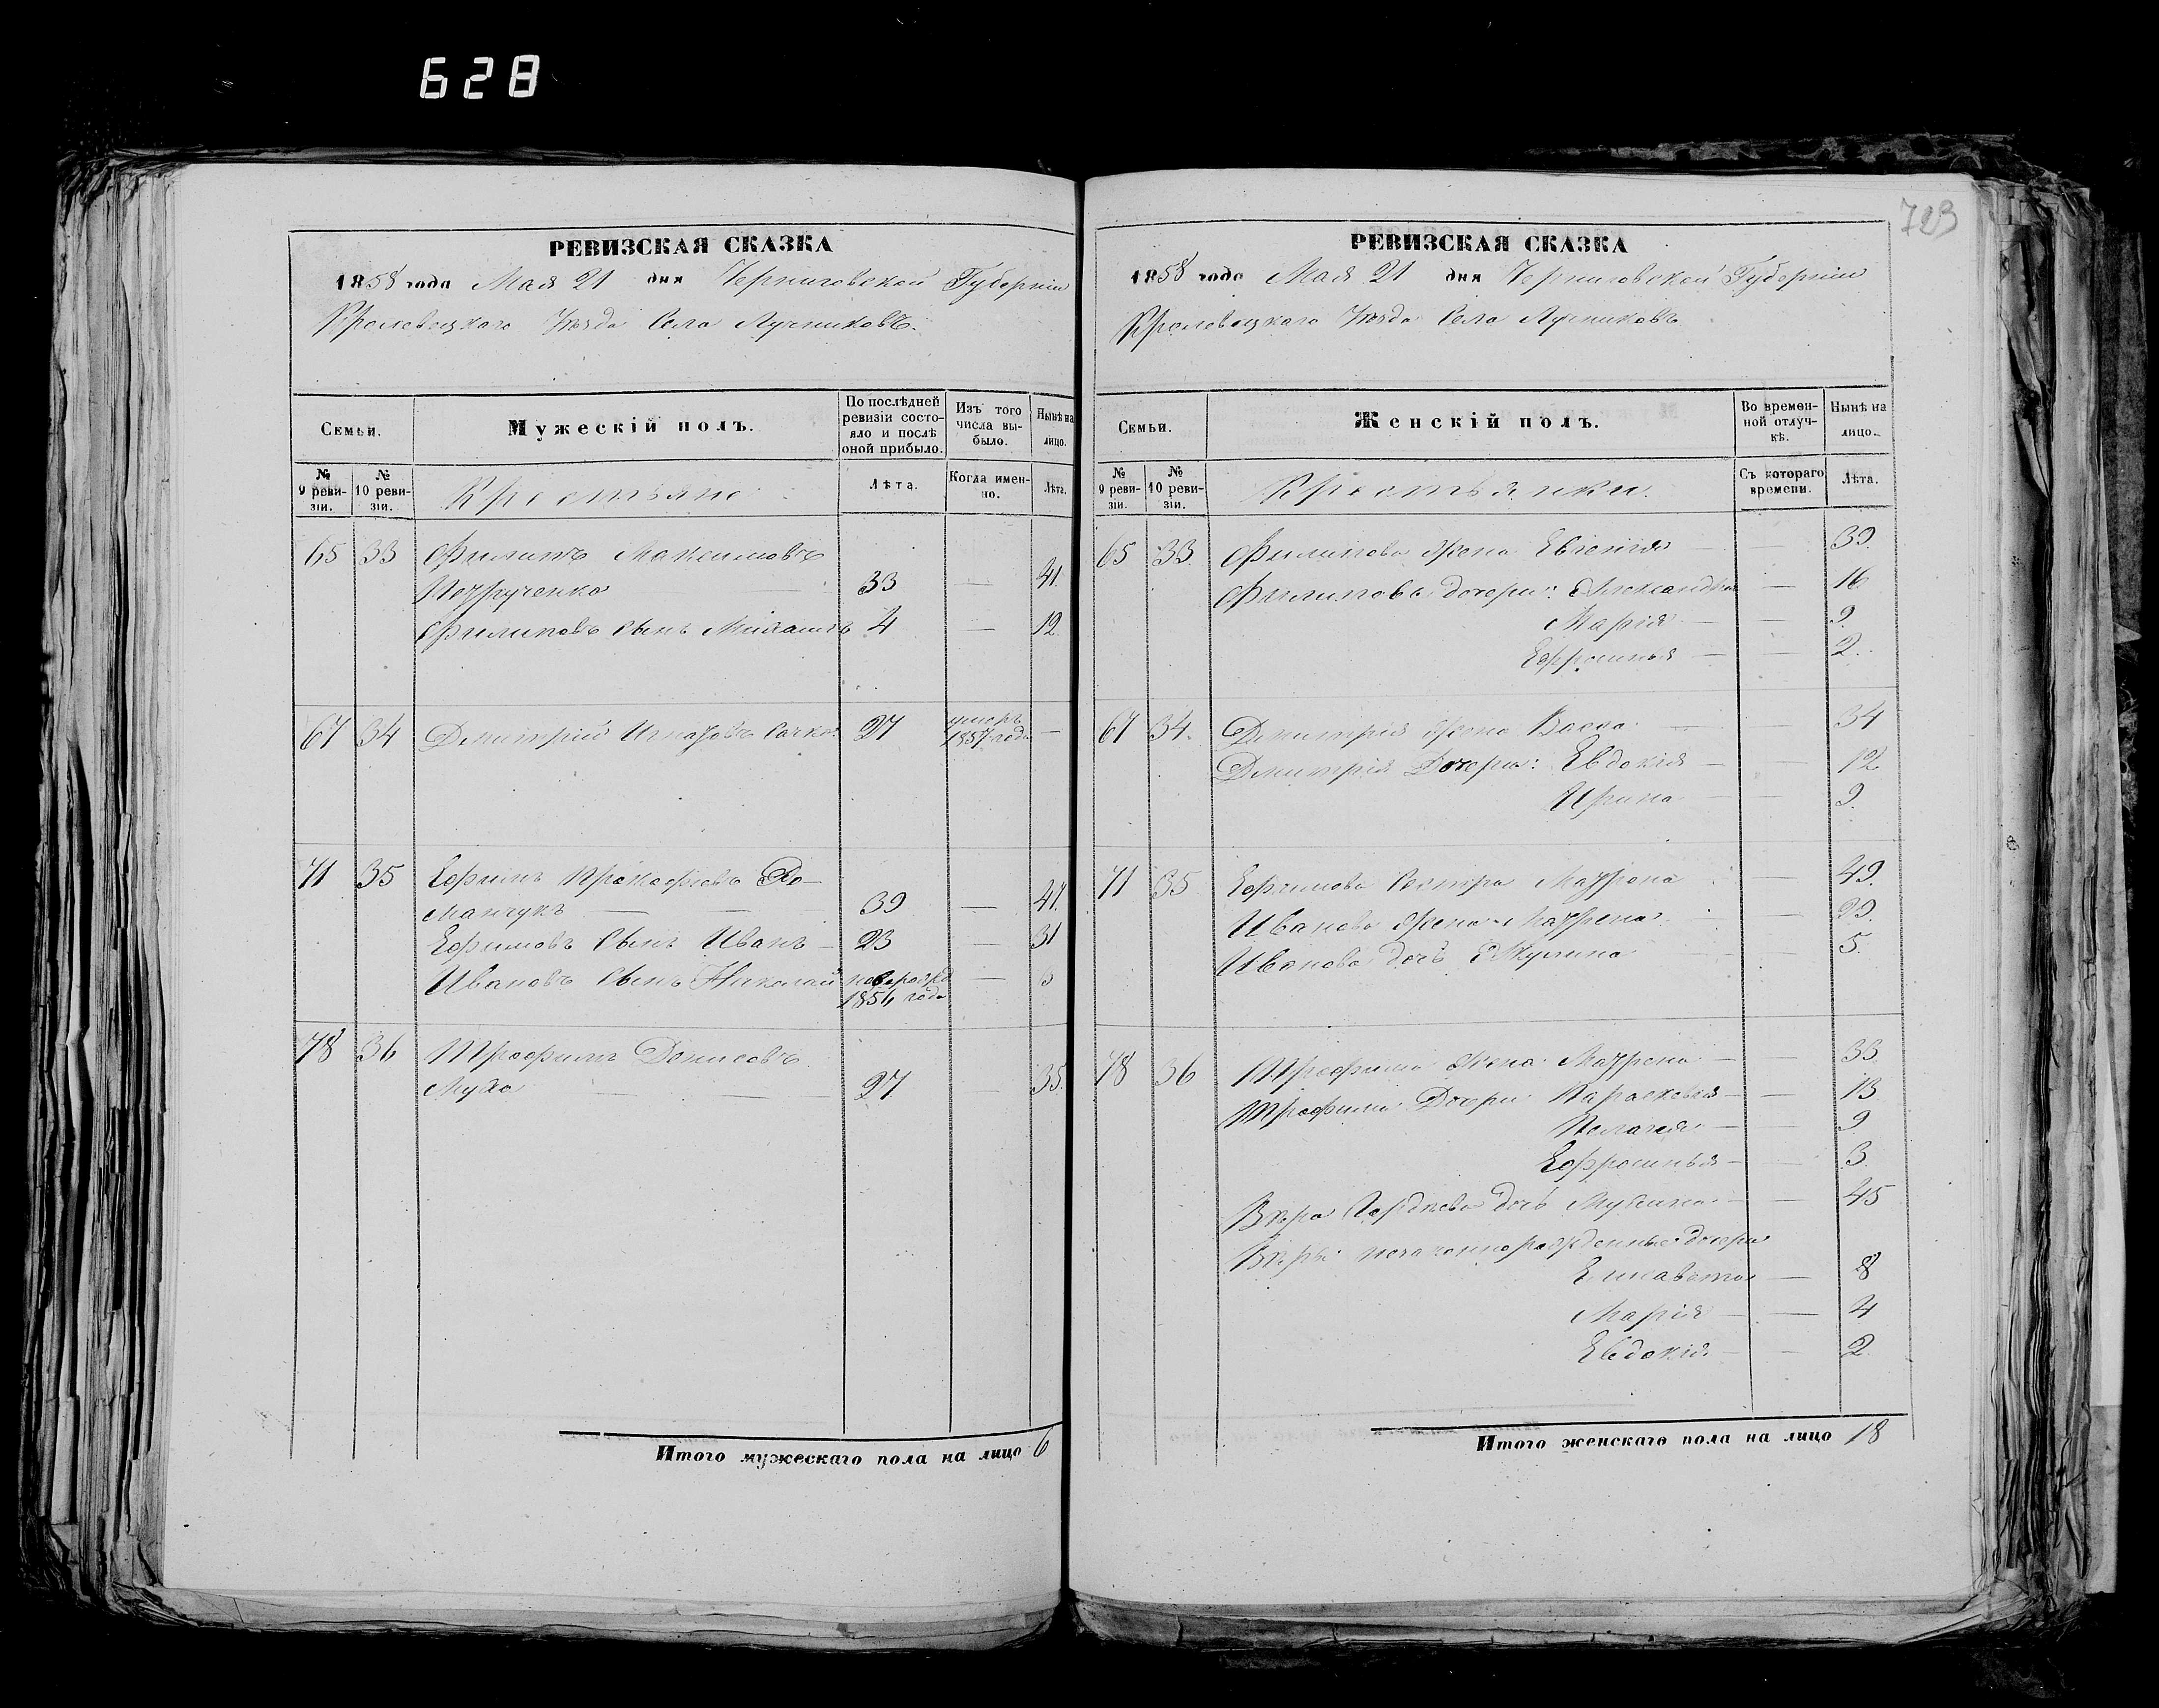 628
723
РЕВИЗСКАЯ СКАЗКА
1858 года Мая 21 дня Черниговской Губерніи
Кролевецкаго Уѣзда Села Лучниковъ.
Семьи.
Мужескій полъ.
По послѣдней ревизіи состояло и послѣ оной прибыло.
Изъ того числа выбыло.
Нынѣ на лицо.
№ 9 ревизіи.
№ 10 ревизіи.
Крестьяне
Лѣта.
Когда именно.
Лѣта.
65 33 Филипъ Максимовъ
33 — 41.
Филиповъ сынъ Михаилъ 4 — 12.
67 34 Дмитрій 27 умеръ 1857 года —
71 35 Ефимъ Прокофіевъ Ро-
манчукъ — — 39 — 47.
Ефимовъ сынъ Иванъ — 23 — 31
Ивановъ сынъ Николай новорожд 1854 года —
78 36 Трофимъ Денисовъ
Муха — — 27 35.
Итого мужескаго пола на лицо 6
РЕВИЗСКАЯ СКАЗКА
1858 года Мая 21 дня Черниговской Губерніи
Кролевецкаго Уѣзда Села Лучниковъ
Семьи.
Женскій полъ.
Во временной отлучкѣ.
Нынѣ на лицо.
№ 9 ревизіи.
№ 10 ревизіи.
Крестьянки.
Съ котораго времени.
Лѣта.
65 33. Филипова жена Евгенія — 39.
Филиповы дочери: Александра — 16
Марія — — 9.
Ефросинья — — 2.
67 34. Дмитрія жена — 34
Дмитрія Дочери: Евдокія — — 12
Ирина — — 9.
71 35 Ефимова сестра Матрена — 49.
Иванова жена Матрена — 29.
Иванова дочь Акулина 5.
78 36 Трофима жена Матрена — — 33
Трофима Дочери Параскевія — — 13
Пелагея — — 9
Ефросинья — — 3.
Вѣра дочь Мухина — — 45
Вѣры незаконнорожденные дочери
Елисавета — 8
Марія — — 4
Евдокія — — 2.
Итого женскаго пола на лицо 18